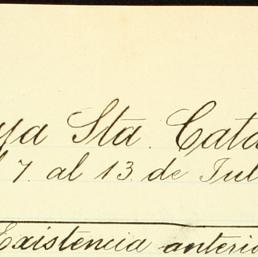 ya Sta. Cata
l 7 al 13 de Jul
Existencia anterio